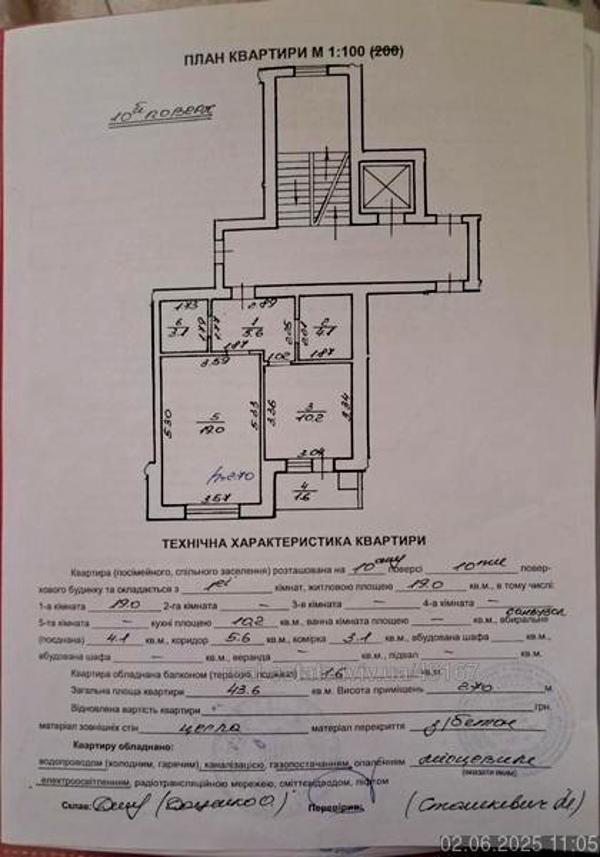 ПЛАН КВАРТИРИ М 1:100 (200)
10й поверх
1.73 2.89
6 3.1 1.79 1.77 1 5.6 2.05 2.01 2 4.1
1.87 1.02 1.87
3.59
5.30 5 19.0 5.33 3.36 3 10.2 3.34
h=2.70 3.04
3.57 4 1.6
ТЕХНІЧНА ХАРАКТЕРИСТИКА КВАРТИРИ
Квартира (посімейного, спільного заселення) розташована на 10ому поверсі 10ти поверхового будинку та складається з 1єї кімнат, житловою площею 19.0 кв.м., в тому числі:
1-а кімната 19.0 2-га кімната – 3-я кімната – 4-а кімната –
5-та кімната – кухні площею 10,2 кв.м., ванна кімната площею – кв.м., вбиральня санвузол
(поєднана) 4.1 кв.м., коридор 5.6 кв.м., комірка 3.1 кв.м., вбудована шафа
вбудована шафа – кв.м., веранда – кв.м., підвал – кв.м.
Квартира обладнана балконом (терасою, лоджією) 1.6 кв.м.
Загальна площа квартири 43.6 кв.м. Висота приміщень 2.70 м
Відновлена вартість квартири грн.
матеріал зовнішніх стін цегла матеріал перекриття з/бетон
Квартиру обладнано:
водопроводом (холодним, гарячим), каналізацією, газопостачанням, опаленням місцевим
(вказати яким)
електроосвітленням, радіотрансляційною мережею, сміттєвідводом, ліфтом
Склав: Перевірив: (Сташкевич Й)
02.06.2025 11:05